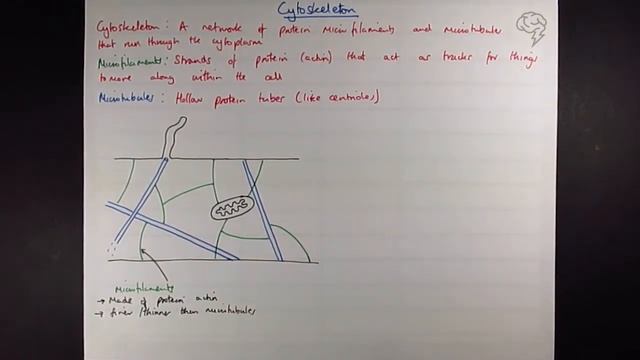 Cytoskeleton
Cytoskeleton: A network of protein Microfilaments and microtubules
that run through the cytoplasm
Microfilaments: Strands of protein (actin) that act as tracks for things
to move along within the cell
Microtubules: Hollow protein tubes (like centrioles)
Microfilaments
→ Made of protein actin
→ finer/thinner then microtubules